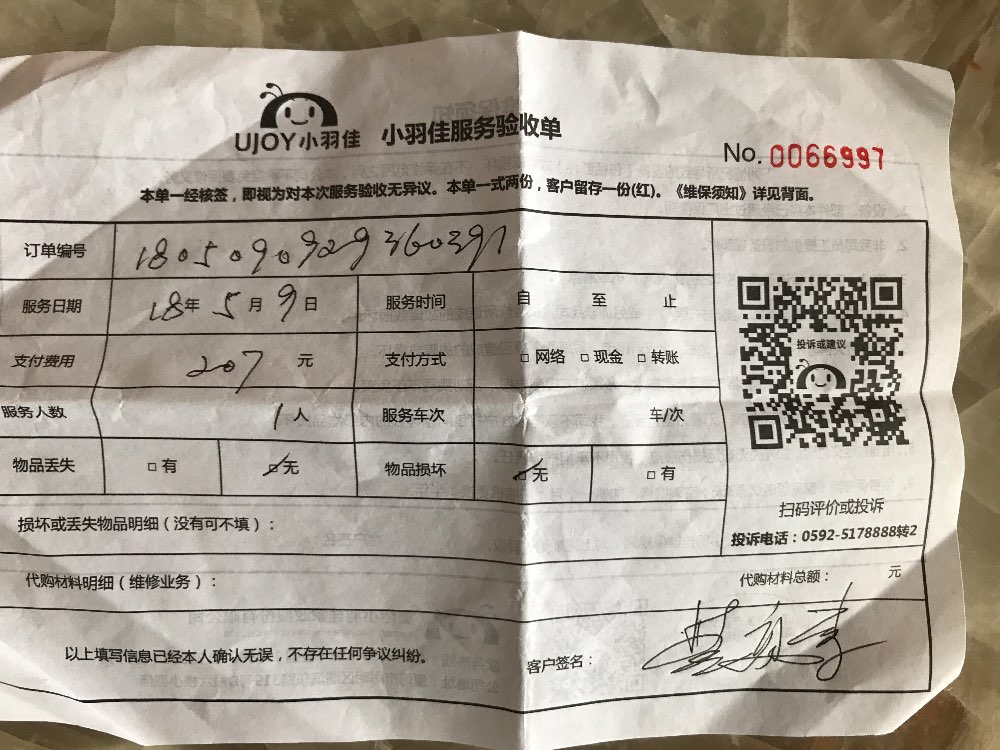 UJOY小羽佳 小羽佳服务验收单
No. 0066997
本单一经核签，即视为对本次服务验收无异议。本单一式两份，客户留存一份(红)。《维保须知》详见背面。
订单编号 1805090929360391
服务日期 18年5月9日 服务时间 自 至 止
支付费用 207 元 支付方式 □网络 □现金 □转账
服务人数 1人 服务车次 车/次
物品丢失 □有 ☑无 物品损坏 ☑无 □有
投诉或建议
扫码评价或投诉
投诉电话：0592-5178888转2
损坏或丢失物品明细（没有可不填）：
代购材料明细（维修业务）： 代购材料总额： 元
以上填写信息已经本人确认无误，不存在任何争议纠纷。 客户签名：